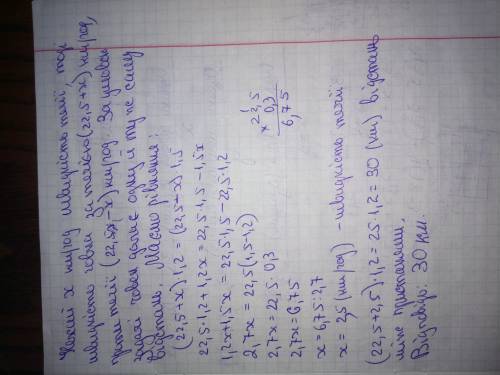 Нехай x км/год швидкість течії, тоді
швидкість човна за течією (22,5+x) км/год,
проти течії (22,5-x) км/год. За умовою
задачі човен долає одну й ту ж саму
відстань. Маємо рівняння:
(22,5+x)·1,2=(22,5-x)·1,5
22,5·1,2+1,2x=22,5·1,5-1,5x
1,2x+1,5x=22,5·1,5-22,5·1,2
2,7x=22,5(1,5-1,2)
2,7x=22,5·0,3
2,7x=6,75
x=6,75:2,7
x=2,5 (км/год) - швидкість течії
22,5
× 0,3
6,75
(22,5+2,5)·1,2=25·1,2=30 (км) відстань
між пристанями.
Відповідь: 30 км.